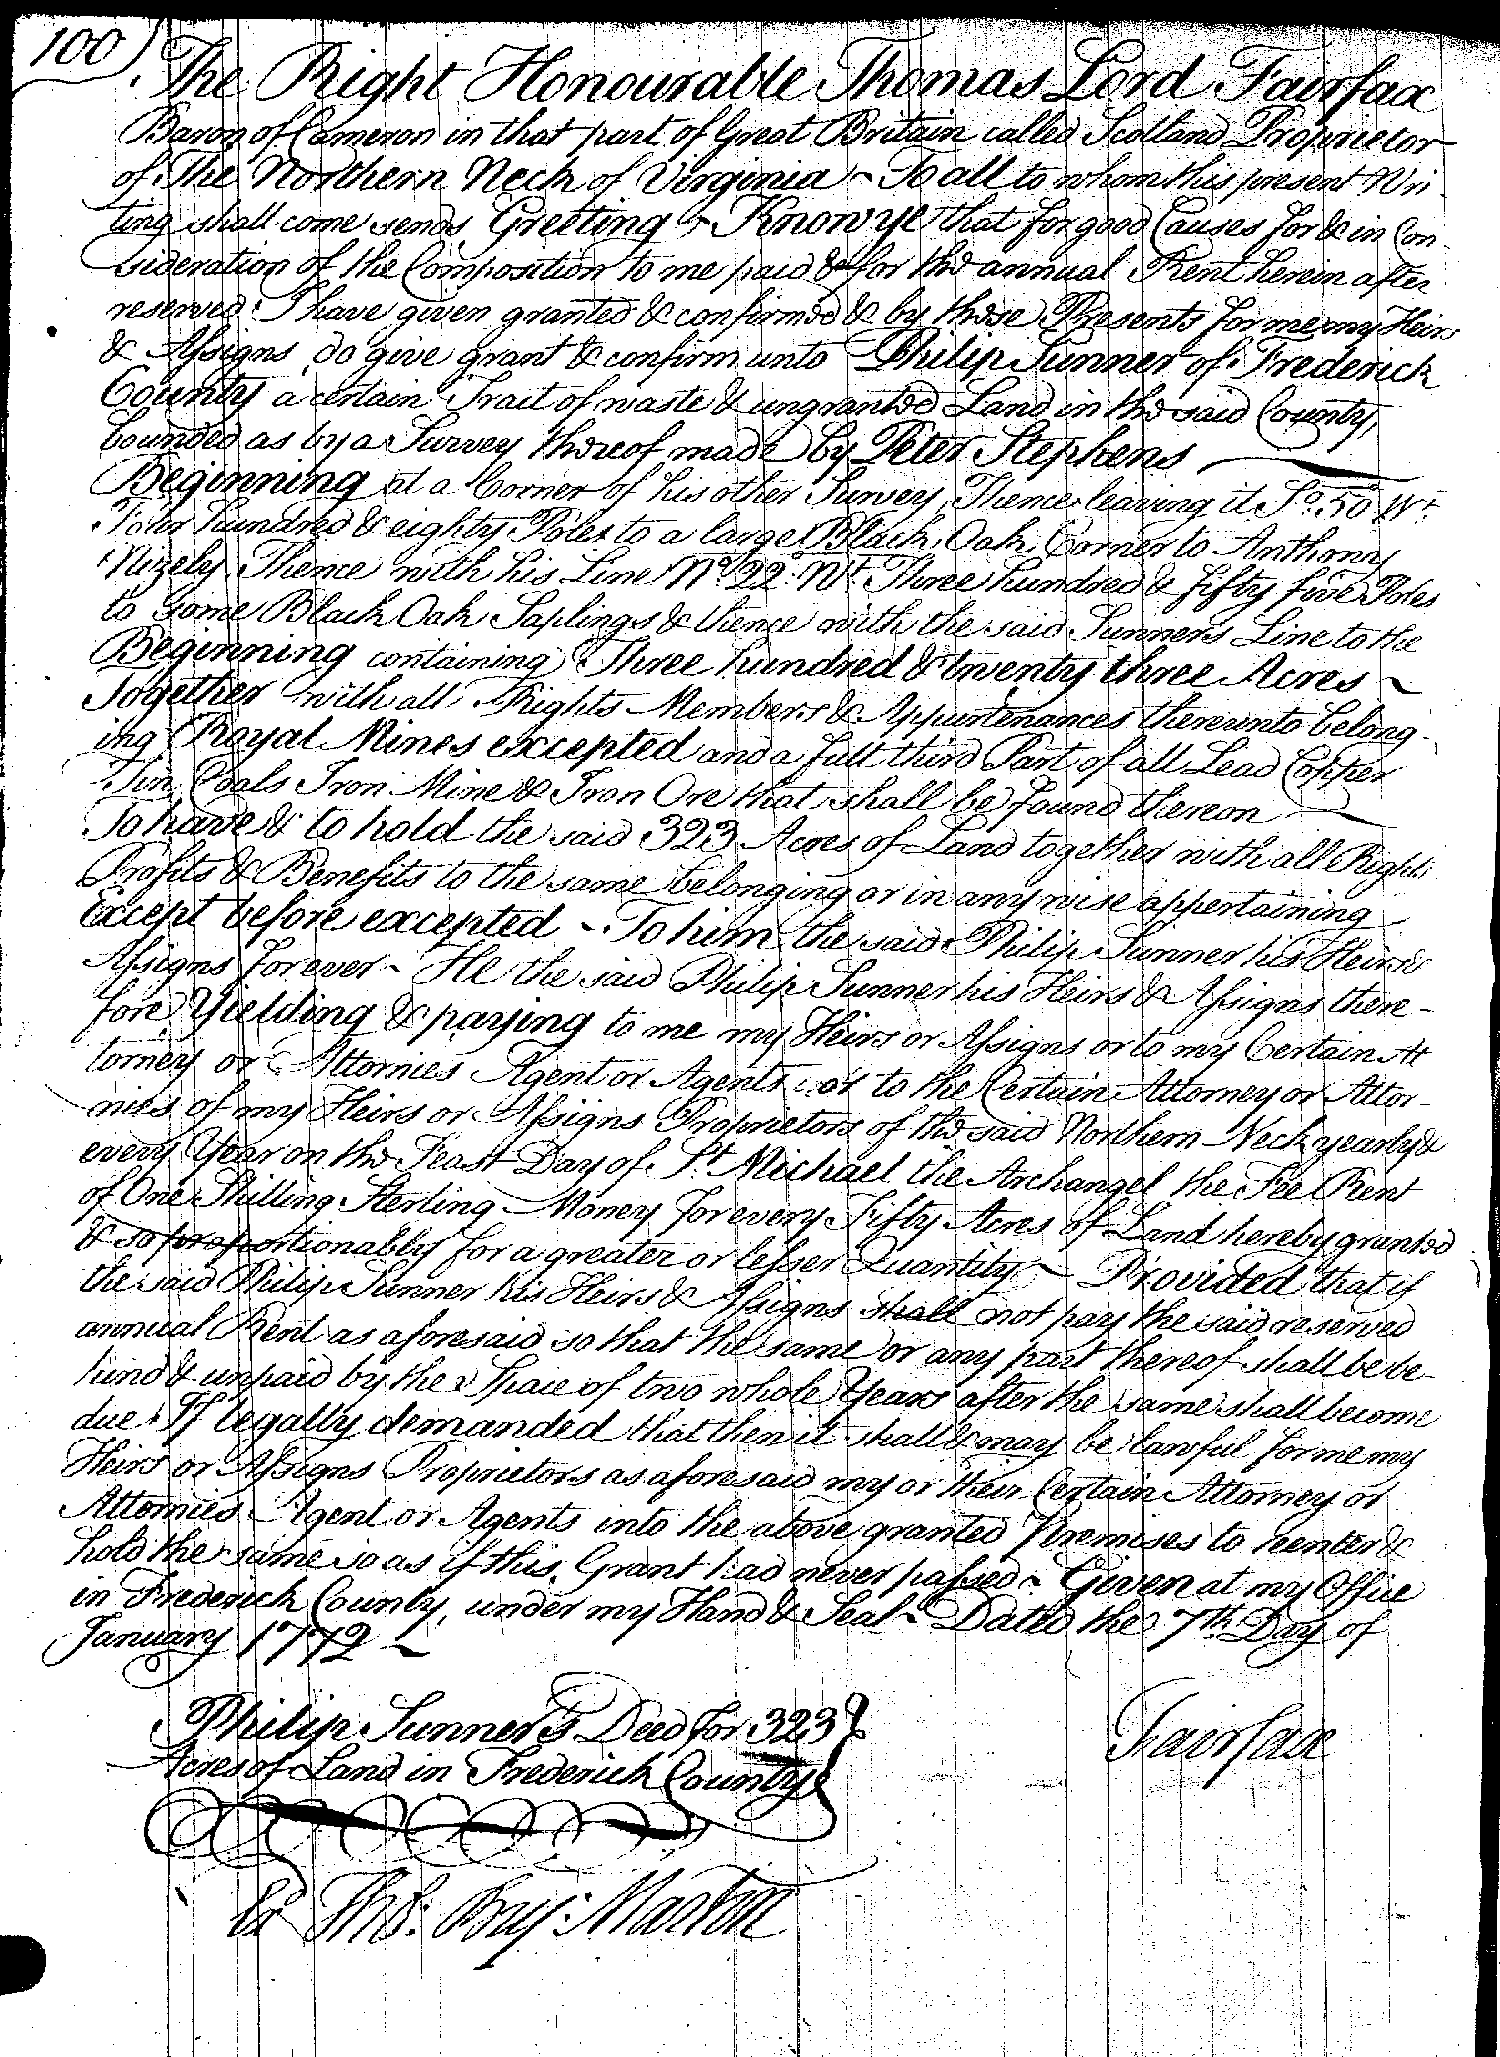 100
The Right Honourable Thomas Lord Fairfax
Baron of Cameron in that part of Great Britain called Scotland Proprietor
of The Northern Neck of Virginia ~ To all to whom this present Wri
ting shall come sends Greeting ~ Know ye that for good Causes for & in Con
sideration of the Composition to me paid & for the annual Rent herein after
reserved I have given granted & confirmed & by these Presents for me my Heirs
& Assigns do give grant & confirm unto Philip Sunner of Frederick
County a certain Trait of waste & ungranted Land in the said County,
bounded as by a Survey thereof made by Peter Stephens
Beginning at a Corner of his other Survey, Thence leaving it So. 50 Wt.
Four hundred & eighty Poles to a large Black Oak Corner to Anthony
Nizely Thence with his Line No. 22 Wt. Three hundred & fifty five Poles
to some Black Oak Saplings & thence with the said Sunner's Line to the
Beginning containing Three hundred & twenty three Acres ~
Together with all Rights Members & Appurtenances thereunto belong-
ing Royal Mines excepted and a full third Part of all Lead Copper
Tin, Coals Iron Mine & Iron Ore that shall be found thereon
To have & to hold the said 323 Acres of Land together with all Rights
Profits & Benefits to the same belonging or in any wise appertaining
Except before excepted ~ To him the said Philip Sunner his Heirs &
Assigns forever ~ He the said Philip Sunner his Heirs & Assigns there-
fore Yielding & paying to me my Heirs or Assigns or to my Certain At
torney or Attornies Agent or Agents or to the Certain Attorney or Attor-
nies of my Heirs or Assigns Proprietors of the said Northern Neck yearly &
every Year on the Feast Day of St. Michael the Archangel the Fee Rent
of One Shilling Sterling Money for every Fifty Acres of Land hereby granted
& so proportionably for a greater or lesser Quantity ~ Provided that if
the said Philip Sunner his Heirs & Assigns shall not pay the said reserved
annual Rent as aforesaid so that the same or any part thereof shall be be-
hind & unpaid by the Space of two whole Years after the same shall become
due If legally demanded that then it shall & may be lawful for me my
Heirs or Assigns Proprietors as aforesaid my or their Certain Attorney or
Attornies Agent or Agents into the above granted Premises to reenter &
hold the same so as if this Grant had never passed ~ Given at my Office
in Frederick County, under my Hand & Seal ~ Dated the 7th. Day of
January 1772 ~
Philip Sunner's Deed for 323
Acres of Land in Frederick County
Fairfax
Ex Tho: Bry: Martin